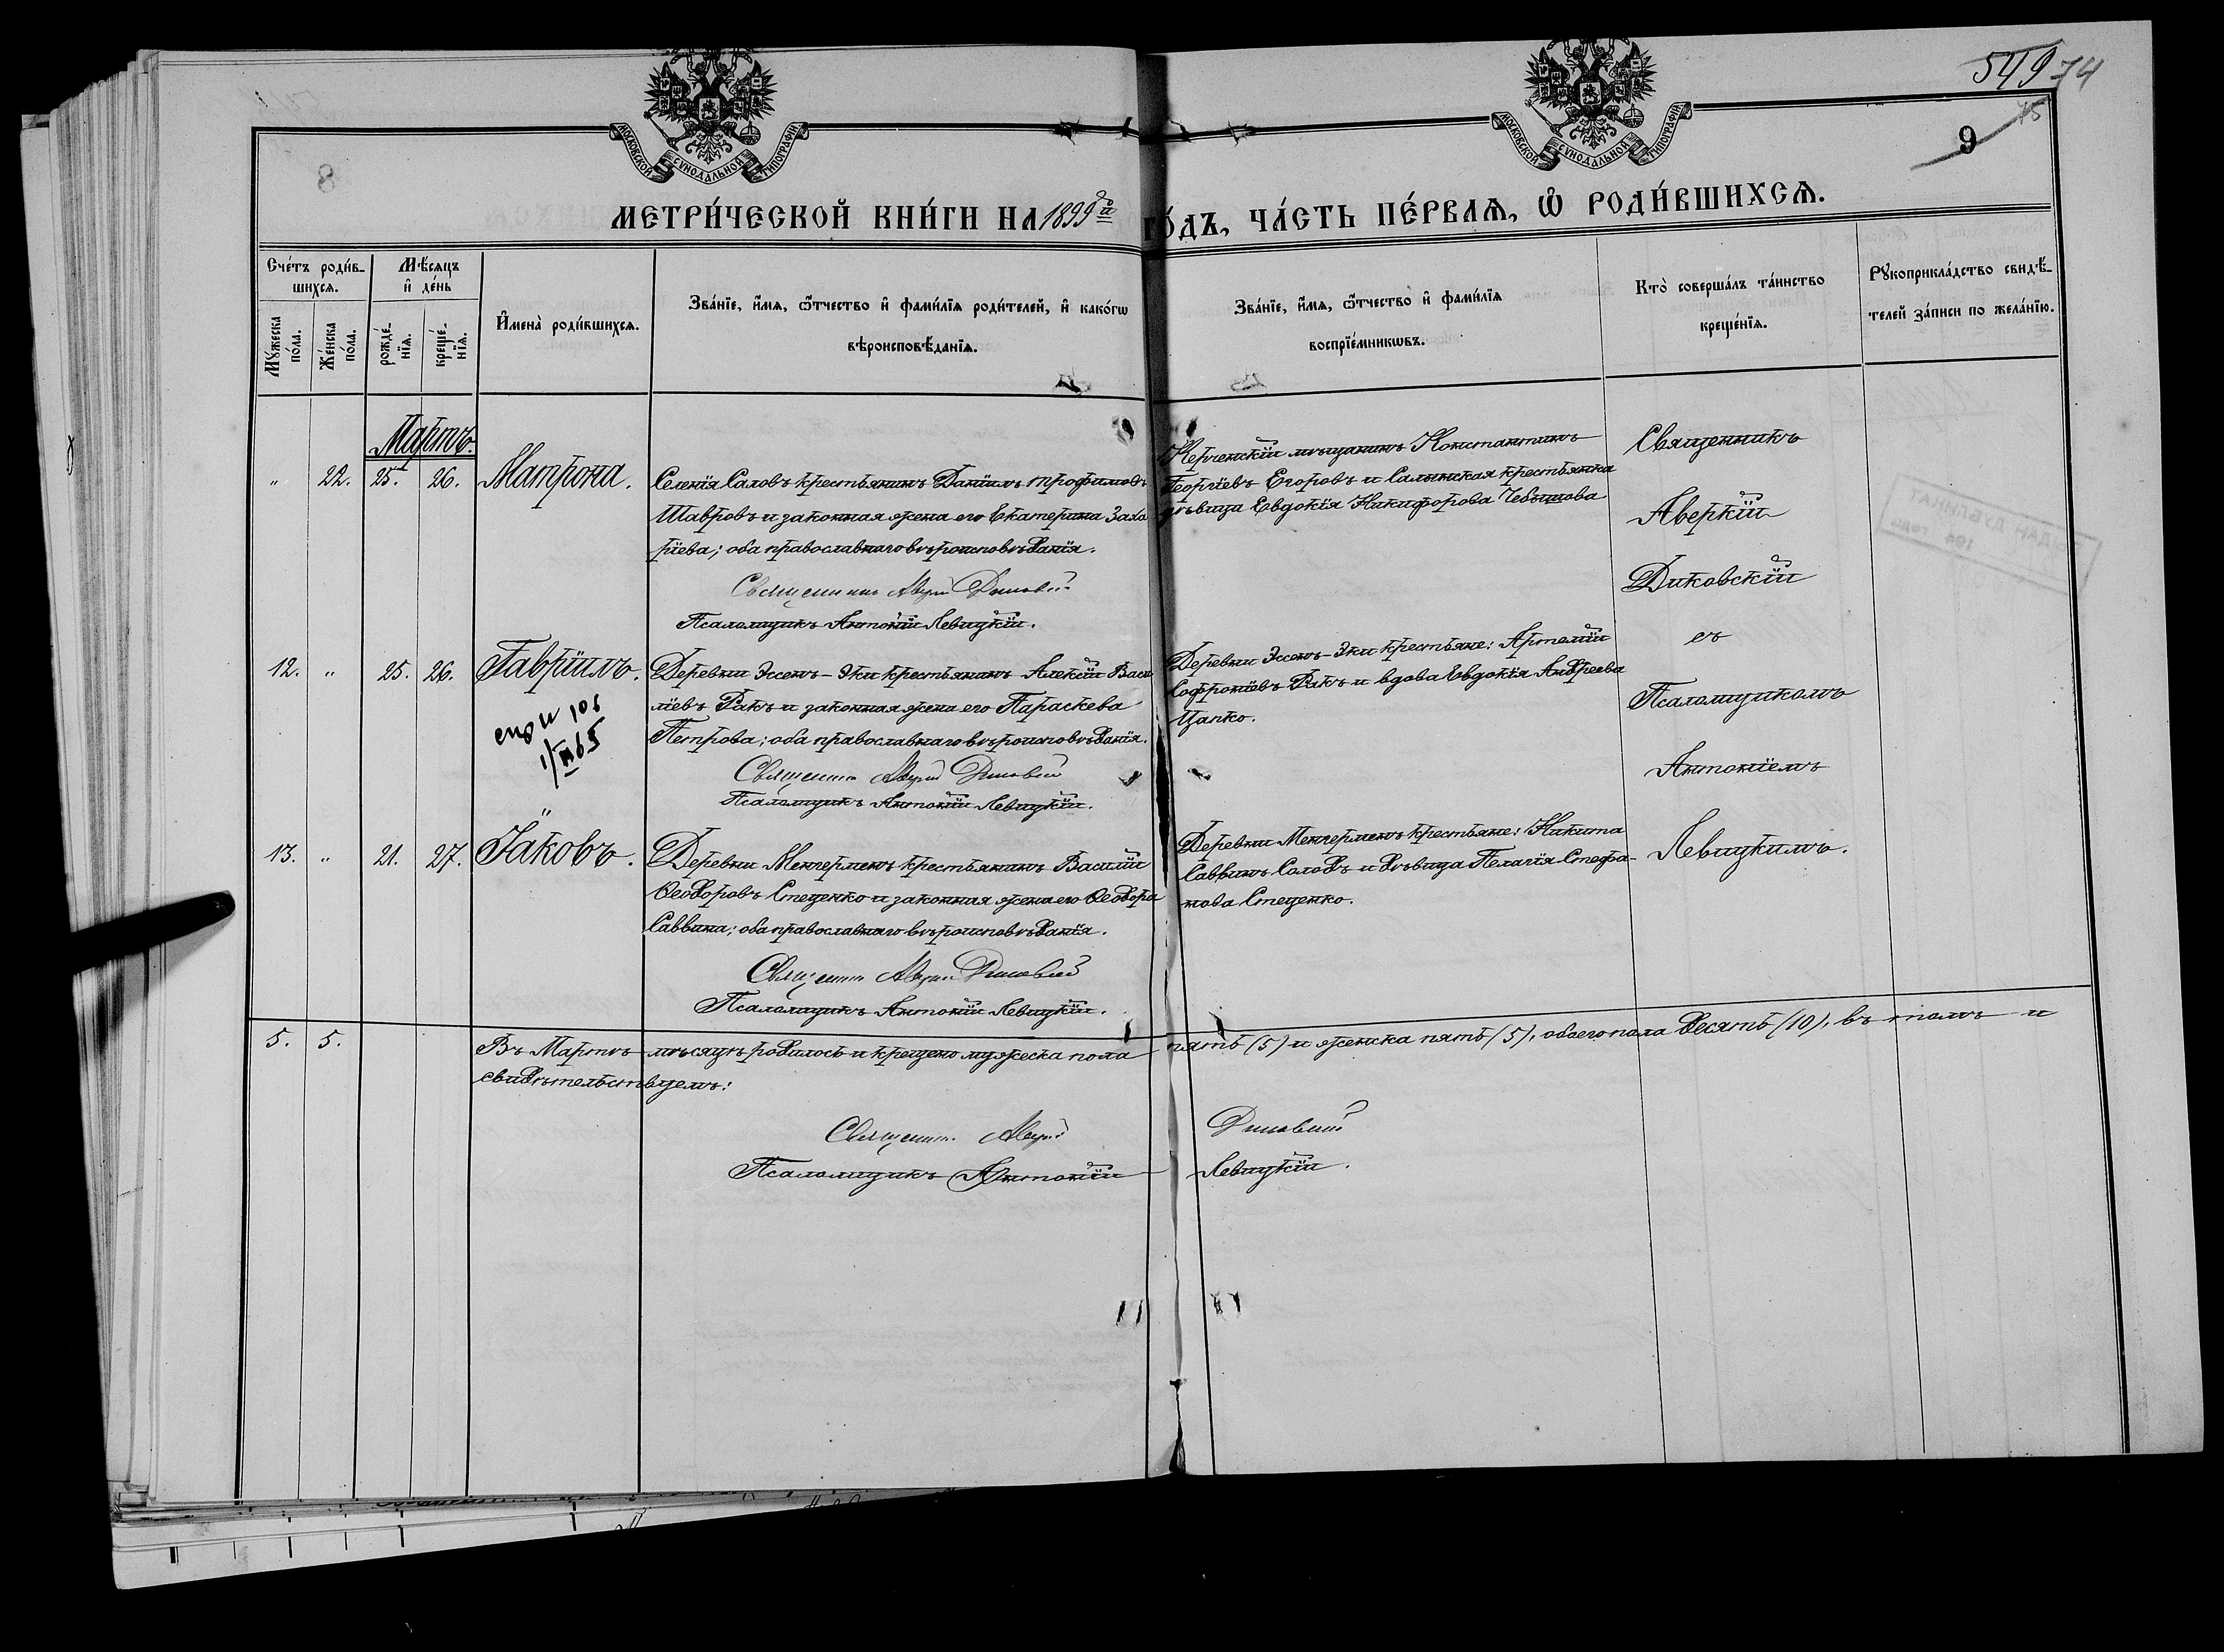 549 74
75
9
МОСКОВСКОЙ СѴНОДАЛЬНОЙ ТИПОГРАФІИ
МОСКОВСКОЙ СѴНОДАЛЬНОЙ ТИПОГРАФІИ
МЕТРИ́ЧЕСКОЙ КНИ́ГИ НА 1899й ГО́ДЪ, ЧА́СТЬ ПЕ́РВАѦ, Ѡ҆ РОДИ́ВШИХСѦ.
Сче́тъ роди́в-
шихсѧ.
Мꙋ́жеска по́ла.
Же́нска по́ла.
Мѣ́сѧцъ и҆ де́нь
рожде́-нїѧ.
креще́-нїѧ.
И҆мена̀ роди́вшихсѧ.
Зва́нїе, и҆́мѧ, ѻ҆́тчество и҆ фами́лїѧ роди́телей, и҆ како́гѡ
вѣроисповѣ́данїѧ.
Зва́нїе, и҆́мѧ, ѻ҆́тчество и҆ фами́лїѧ
воспрїе́мникѡвъ.
Кто̀ соверша́лъ та́инство
креще́нїѧ.
Рꙋкоприкла́дство свидѣ́-
телей за́писи по жела́нїю.
Мартъ.
" 22. 25. 26. Матрона.
Селенія Саловъ крестьянинъ Даніилъ Трофимовъ
Шавровъ и законная жена его Екатерина Заха
ріева; оба православнаго вѣроисповѣданія.
Священникъ Аверкій Диковскій
Псаломщикъ Антоній Левицкій.
Керченскій мѣщанинъ Константинъ
Георгіевъ Егоровъ и Салынская крестьянка
дѣвица Евдокія Никифорова Чебышова.
Священникъ
Аверкій
Диковскій
съ
Псаломщикомъ
Антоніемъ
Левицкимъ.
12. " 25. 26. Гавріилъ.
1/III 65
Деревни Эссенъ-Эки крестьянинъ Алексій Васи
ліевъ Ракъ и законная жена его Параскева
Петрова; оба православнаго вѣроисповѣданія.
Священникъ Аверкій Диковскій
Псаломщикъ Антоній Левицкій.
Деревни Эссенъ-Эки крестьяне: Артемій
Софроніевъ Ракъ и вдова Евдокія Андреева
Цапко.
13. " 21. 27. Іаковъ.
Деревни Менгерменъ крестьянинъ Василій
Ѳеодоровъ Стеценко и законная жена его Ѳеодора
Саввина; оба православнаго вѣроисповѣданія.
Священникъ Аверкій Диковскій
Псаломщикъ Антоній Левицкій.
Деревни Менгерменъ крестьяне: Никита
Саввинъ Солодъ и дѣвица Пелагія Стефа-
нова Стеценко.
5. 5. Въ Мартѣ мѣсяцѣ родилось и крещено мужеска пола пять (5) и женска пять (5), обоего пола десять (10), въ томъ и
свидѣтельствуемъ:
Священникъ Аверкій Диковскій
Псаломщикъ Антоній Левицкій.